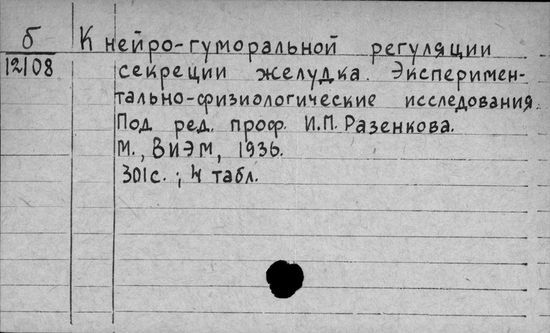 б К нейро-гуморальной регуляции
12108 секреции желудка. Эксперимен-
тально-физиологические исследования.
Под ред. проф. И.П. Разенкова.
М., ВИЭМ, 1936.
301с. ; 4 табл.